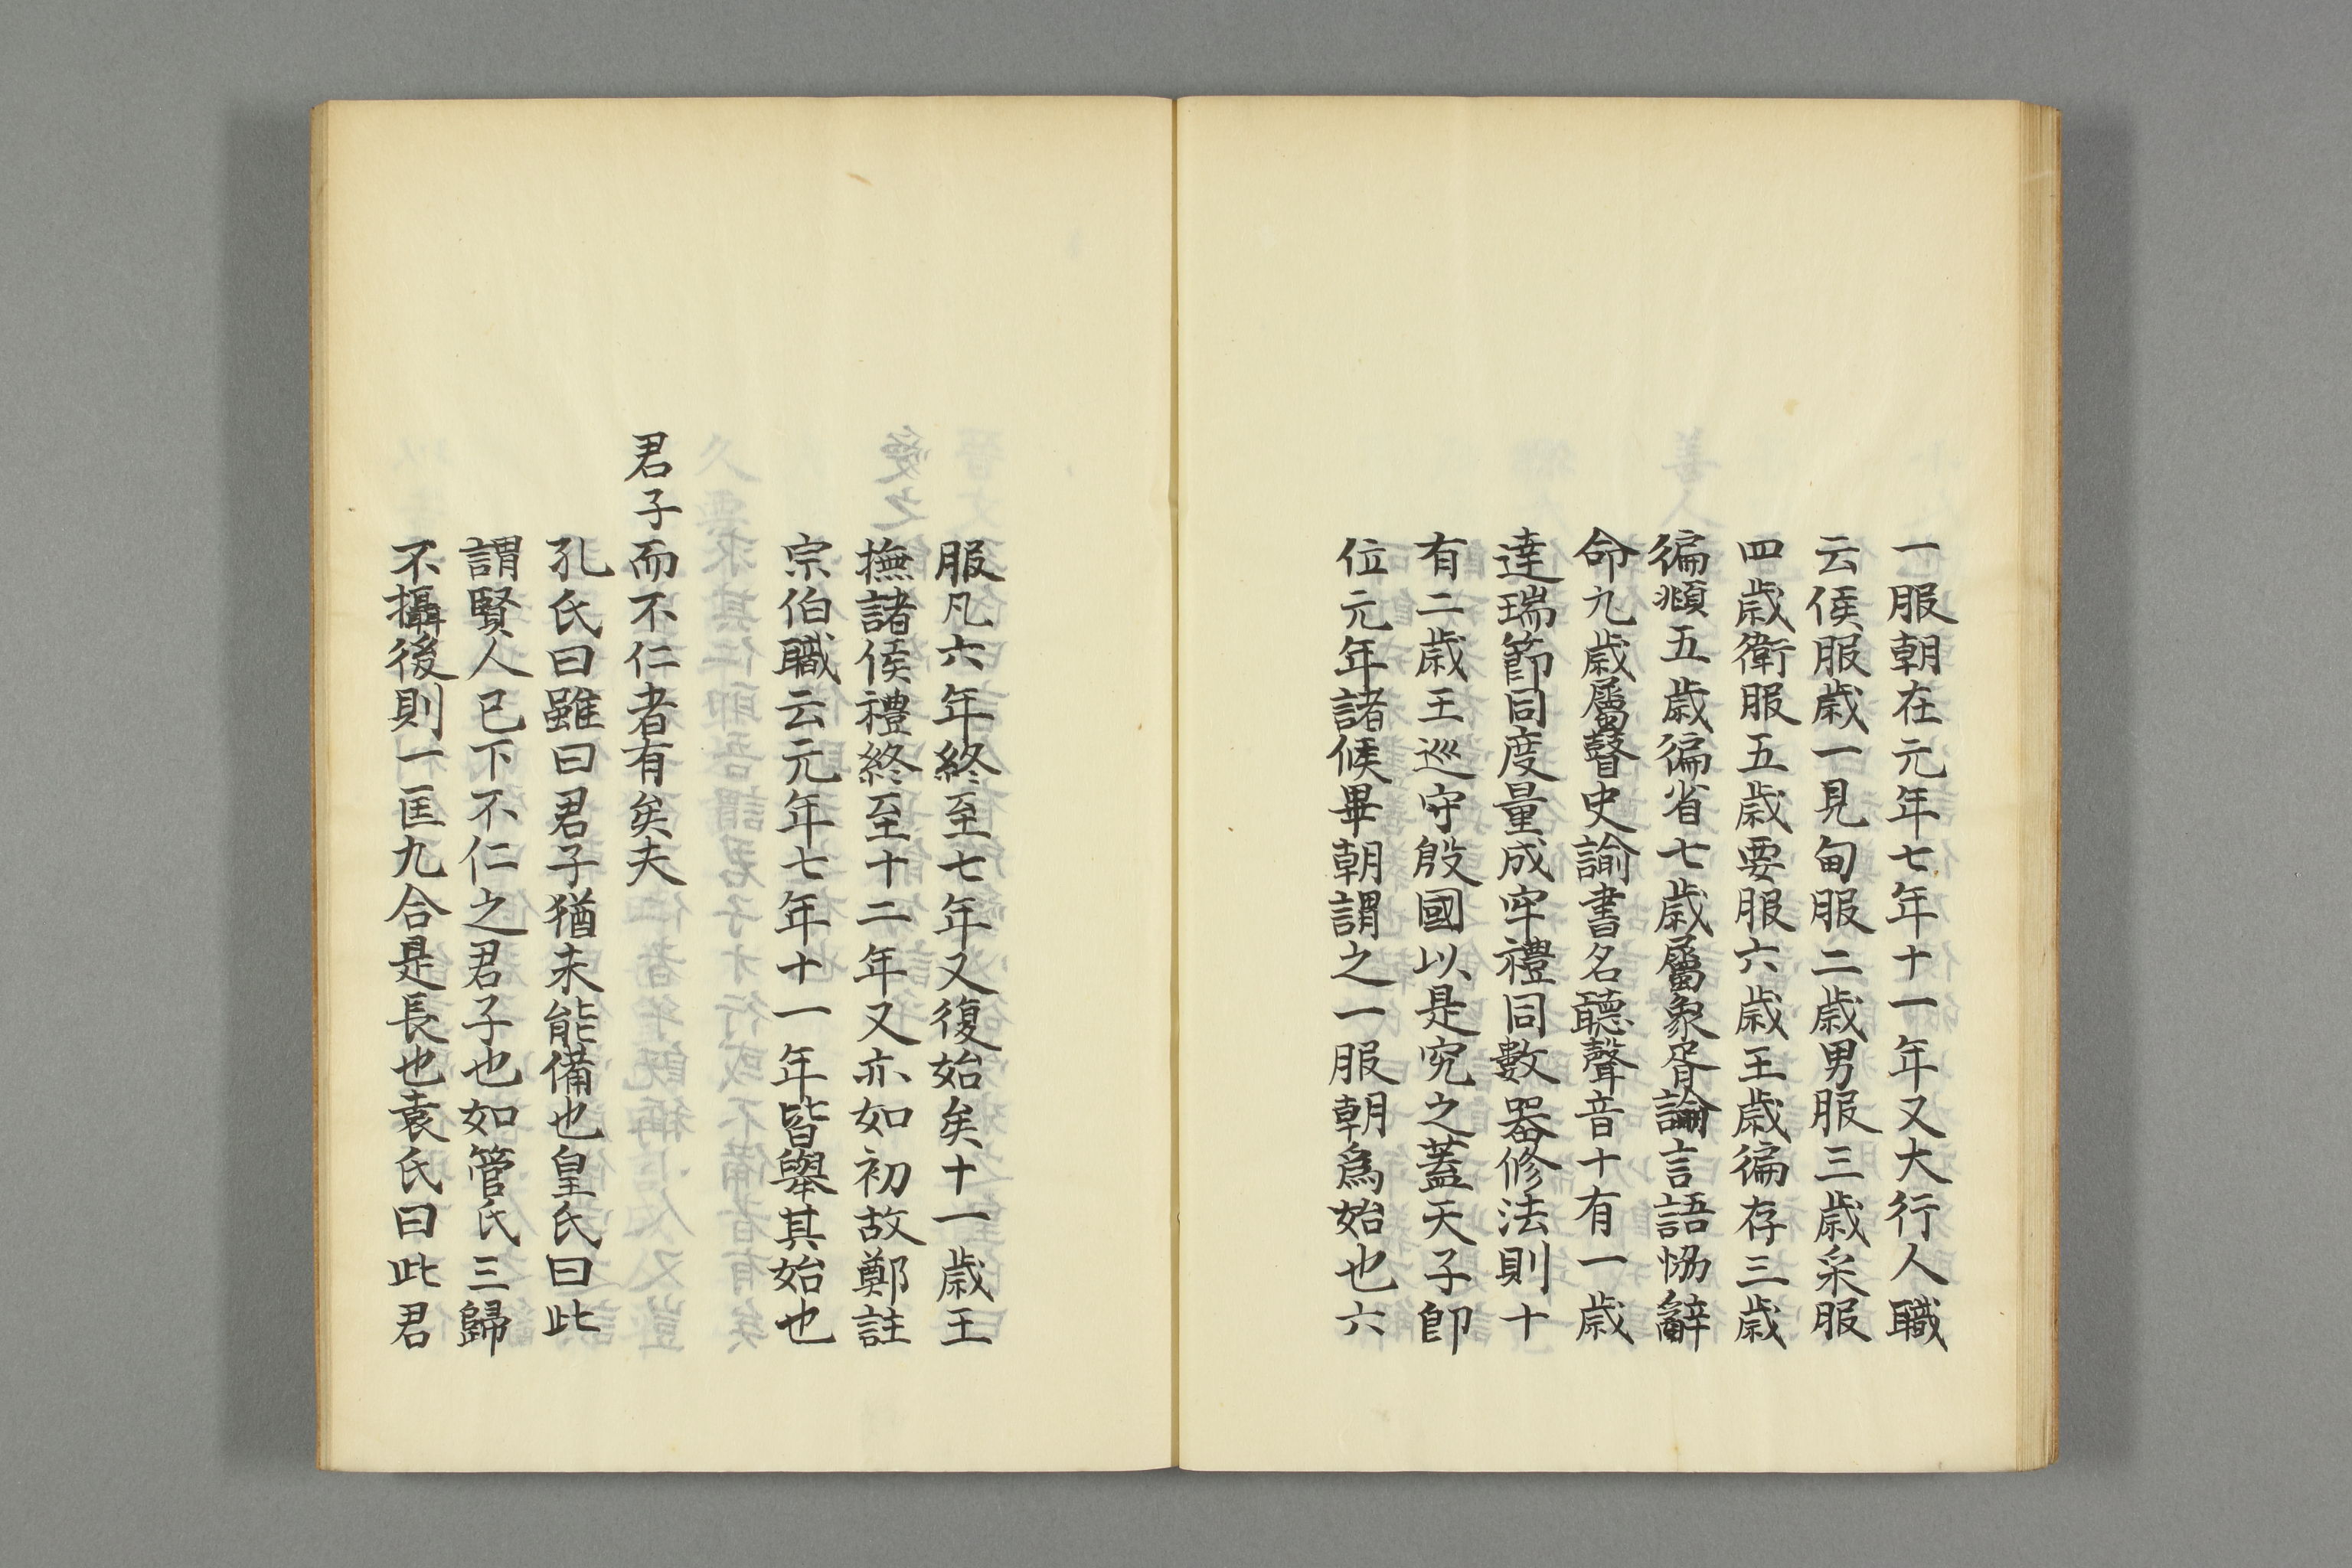 一服朝在元年七年十一年又大行人職
云侯服歳一見甸服二歳男服三歳采服
四歳衛服五歳要服六歳王歳徧存三歳
徧頫五歳徧省七歳屬象胥諭言語協辭
命九歳屬瞽史諭書名聽聲音十有一歳
達瑞節同度量成牢禮同數器修法則十
有二歳王巡守殷國以是究之蓋天子即
位元年諸候畢朝謂之一服朝爲始也六
服凡六年終至七年又復始矣十一歳王
撫諸侯禮終至十二年又亦如初故鄭註
宗伯職云元年七年十一年皆舉其始也
君子而不仁者有矣夫
孔氏曰雖曰君子猶未能備也皇氏曰此
謂賢人已下不仁之君子也如管氏三歸
不攝後則一匡九合是長也袁氏曰此君